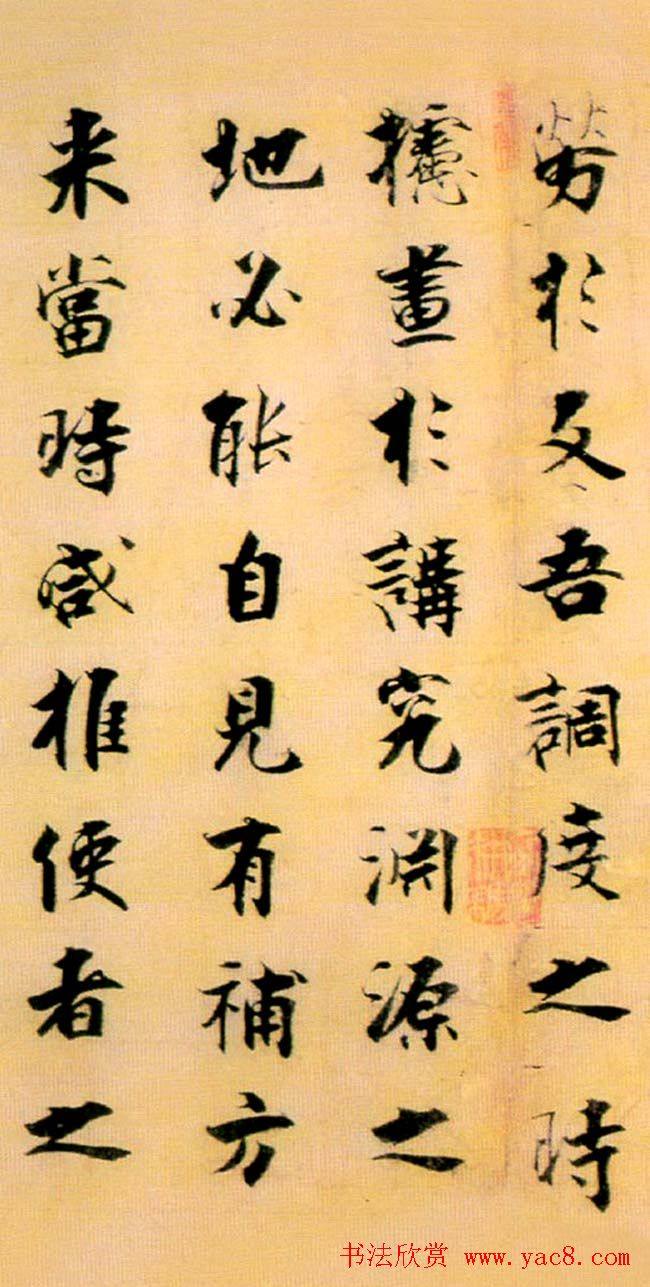 勞於支吾調度之時
攄畫於講究淵源之
地必能自見有補方
来當時咸推使者之
书法欣赏 www.yac8.com